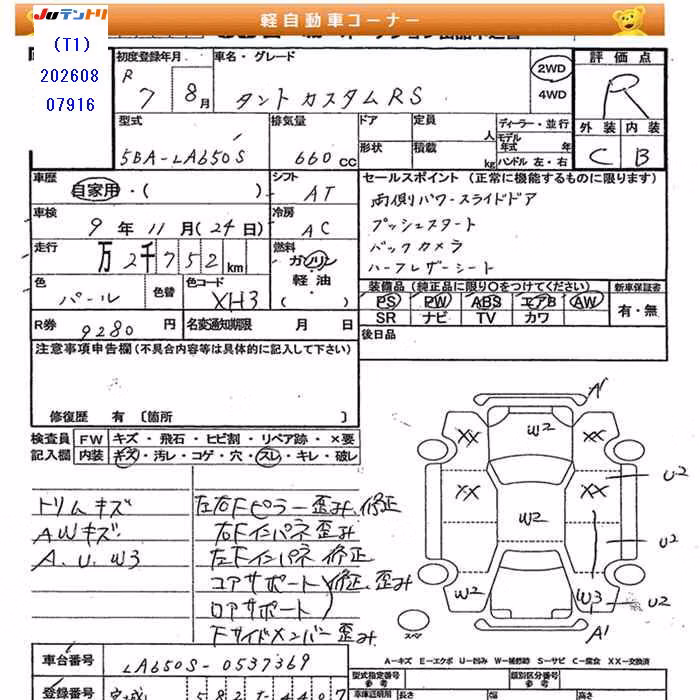 Juテントリ
軽自動車コーナー
(T1)
202608
07916
初度登録年月
R 7 8月
車名・グレード
タント カスタム RS
2WD
4WD
評価点
R
外装 内装
C B
型式
5BA-LA650S
排気量
660 CC
ドア
定員
人
形状
積載
kg
ディーラー・並行
モデル年式 年
ハンドル 左・右
車歴
自家用・( )
シフト
AT
セールスポイント (正常に機能するものに限ります)
両側パワースライドドア
プッシュスタート
バックカメラ
ハーフレザーシート
車検
9年 11月(24日)
冷房
AC
走行
万 2千752 km
燃料
ガソリン
軽油
( )
色
パール
色替
色コード
XH3
装備品 (純正品に限り○をつけてください)
PS PW ABS エアB AW
SR ナビ TV カワ
新車保証書
有・無
R券
9280 円
名変通知期限 月 日
後日品
注意事項申告欄 (不具合内容等は具体的に記入して下さい)
修復歴 有 〔箇所 〕
検査員
記入欄
FW キズ・飛石・ヒビ割・リペア跡・×要
内装 キズ・汚レ・コゲ・穴・スレ・キレ・破レ
トリムキズ
AWキズ
A.U.W3
左右Fピラー歪み、修正
右Fインパネ歪み
左Fインパネ修正
コアサポート 修正、歪み
ロアサポート
Fサイドメンバー歪み
A1
W2
XX
XX
XX
XX
U2
W2
U2
W2
W3
U2
A1
スペア
A-キズ E-エクボ U-凹み W-補修跡 S-サビ C-腐食 XX-交換済
車台番号
LA650S-0537369
型式指定番号
参考
類別区分番号
参考
登録番号
車庫証明用
参考
長さ
幅
高さ